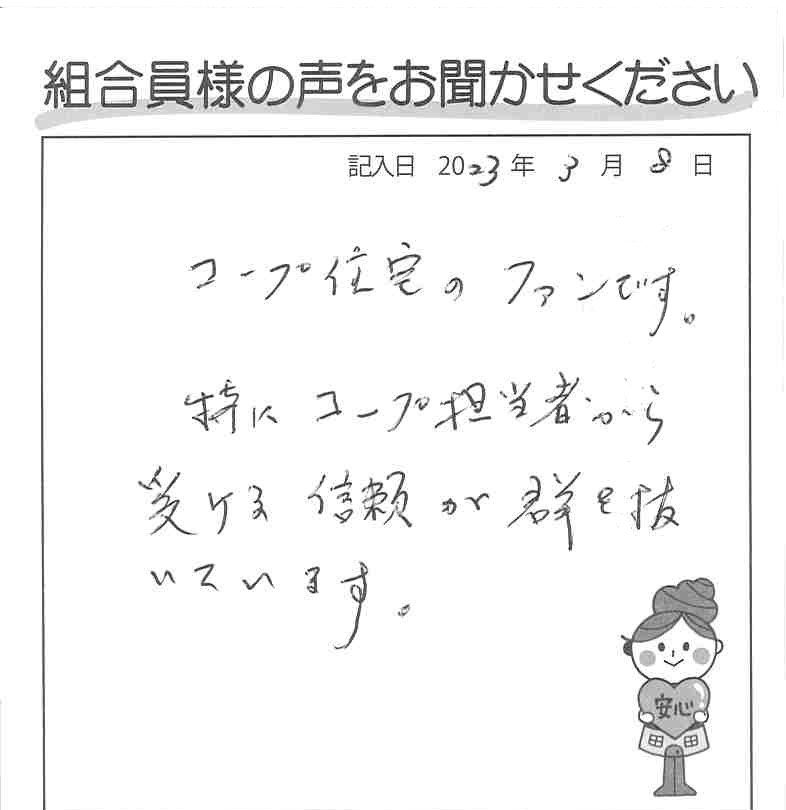 組合員様の声をお聞かせください
記入日 2023年 3月 8日
コープ住宅の ファンです。
特に コープ担当者から
受ける 信頼が 群を抜
いています。
安心